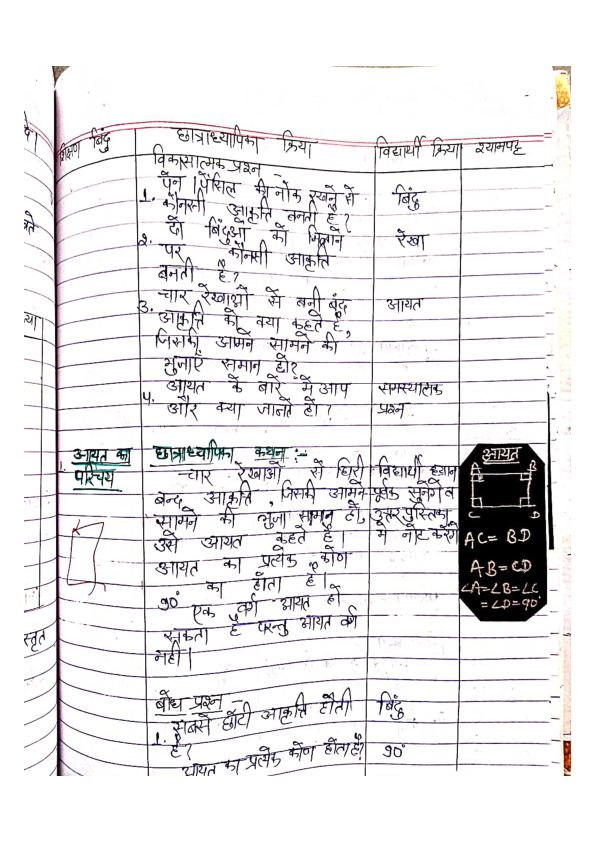 शिक्षण बिंदु छात्राध्यापिका क्रिया विद्यार्थी क्रिया श्यामपट्ट
विकासात्मक प्रश्न -
1. पेन / पेंसिल की नोक रखने से बिंदु
कौनसी आकृति बनती है ?
2. दो बिंदुओं को मिलाने रेखा
पर कौनसी आकृति
बनती है ?
3. चार रेखाओं से बनी बंद आयत
आकृति को क्या कहते है,
जिसकी आमने सामने की
भुजाएं समान हो?
4. आयत के बारे में आप समस्यात्मक
और क्या जानते हो ? प्रश्न
1. आयत का परिचय
छात्राध्यापिका कथन :-
- चार रेखाओं से घिरी
बन्द आकृति, जिसकी आमने
सामने की भुजा समान हो,
उसे आयत कहते है।
आयत का प्रत्येक कोण
90° का होता है।
एक वर्ग आयत हो
सकता है परन्तु आयत वर्ग
नही।
विद्यार्थी ध्यान
पूर्वक सुनेंगे व
उत्तर पुस्तिका
में नोट करेंगे
आयत
A B
C D
AC = BD
AB = CD
∠A=∠B=∠C
=∠D=90°
बोध प्रश्न -
1. सबसे छोटी आकृति होती बिंदु
है ?
आयत का प्रत्येक कोण होता है? 90°
स्तृत